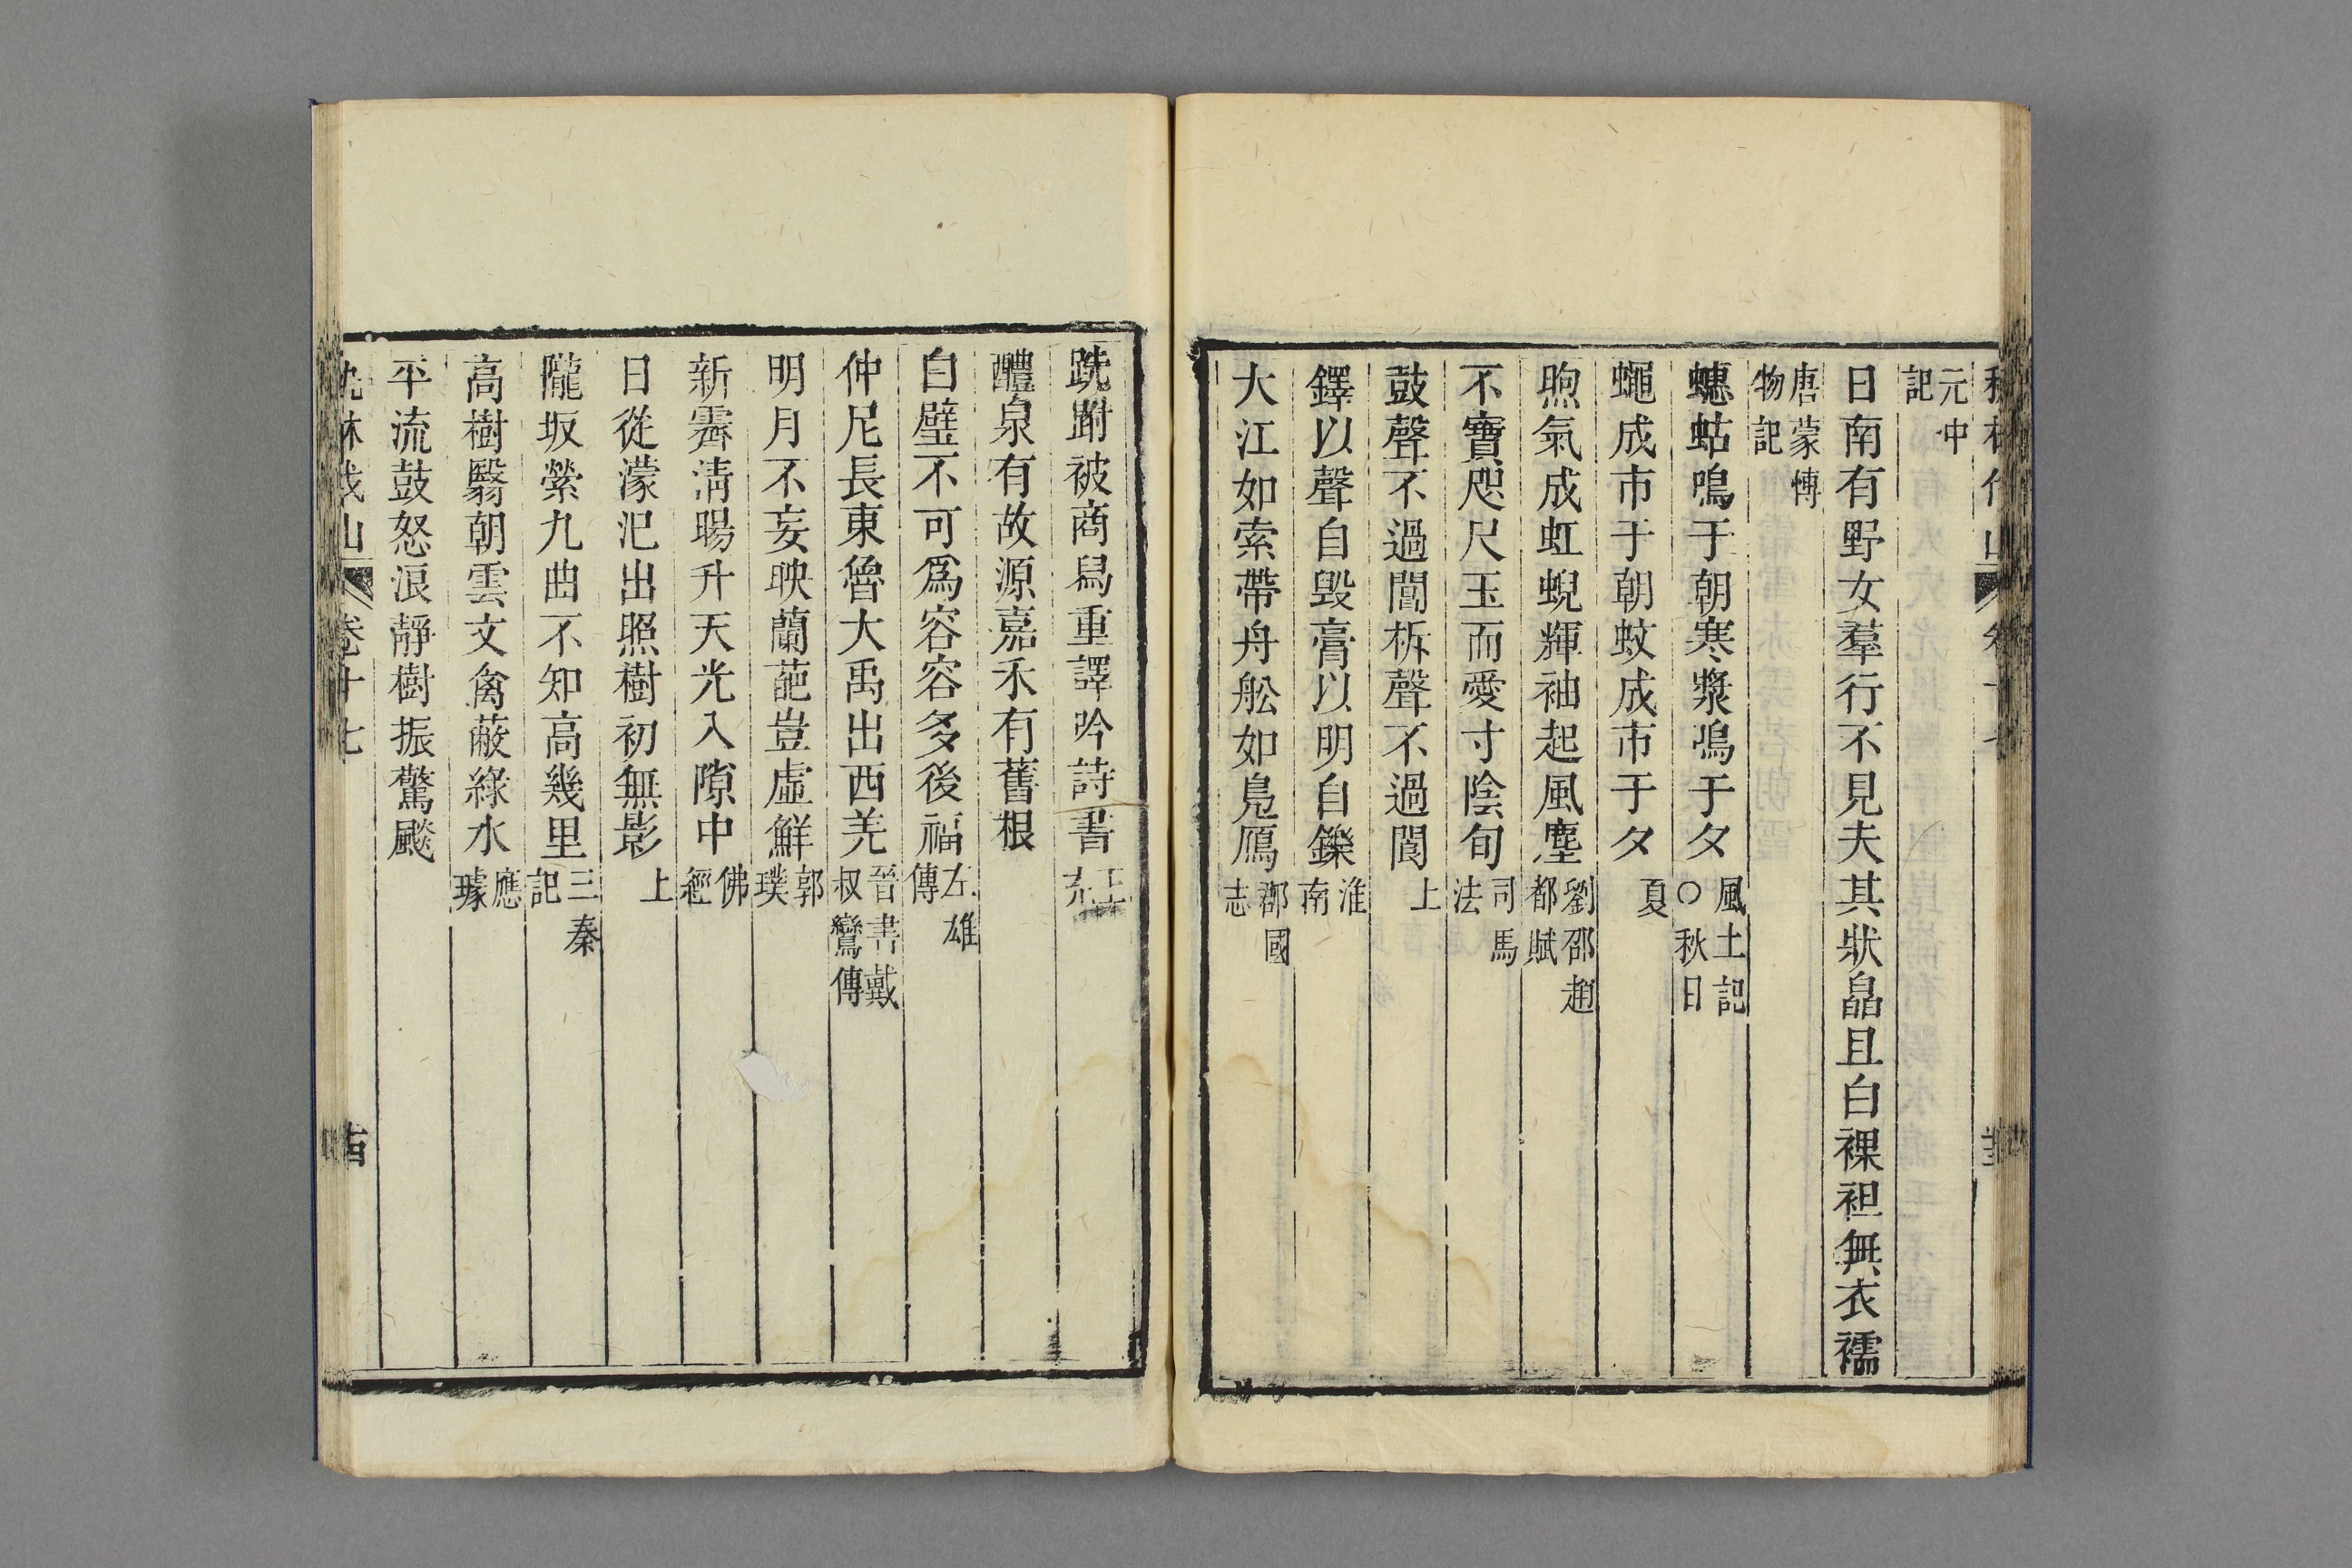 元中記
日南有野女羣行不見夫其狀皛且白裸袒無衣襦
唐蒙慱物記
蟪蛄鳴于朝寒螀鳴于夕風土記○秋日
蠅成市于朝蚊成市于夕夏
煦氣成虹蜺輝袖起風塵劉邵趙都賦
不寶咫尺玉而愛寸陰旬司馬法
鼓聲不過閶柝聲不過閬上
鐸以聲自毀膏以明自鑠淮南
大江如索帶舟舩如鳬鴈郡國志
跣跗被商舄重譯吟詩書
醴泉有故源嘉禾有舊根
白璧不可爲容容多後福左雄傳
仲尼長東魯大禹出西羌晉書戴叔鸞傳
明月不妄映蘭葩豈虛鮮郭璞
新霽淸暘升天光入隙中佛經
日從濛汜出照樹初無影上
隴坂縈九曲不知高幾里三秦記
高樹翳朝雲文禽蔽綠水應璩
平流鼓怒浪靜樹振驚飈
卷十七